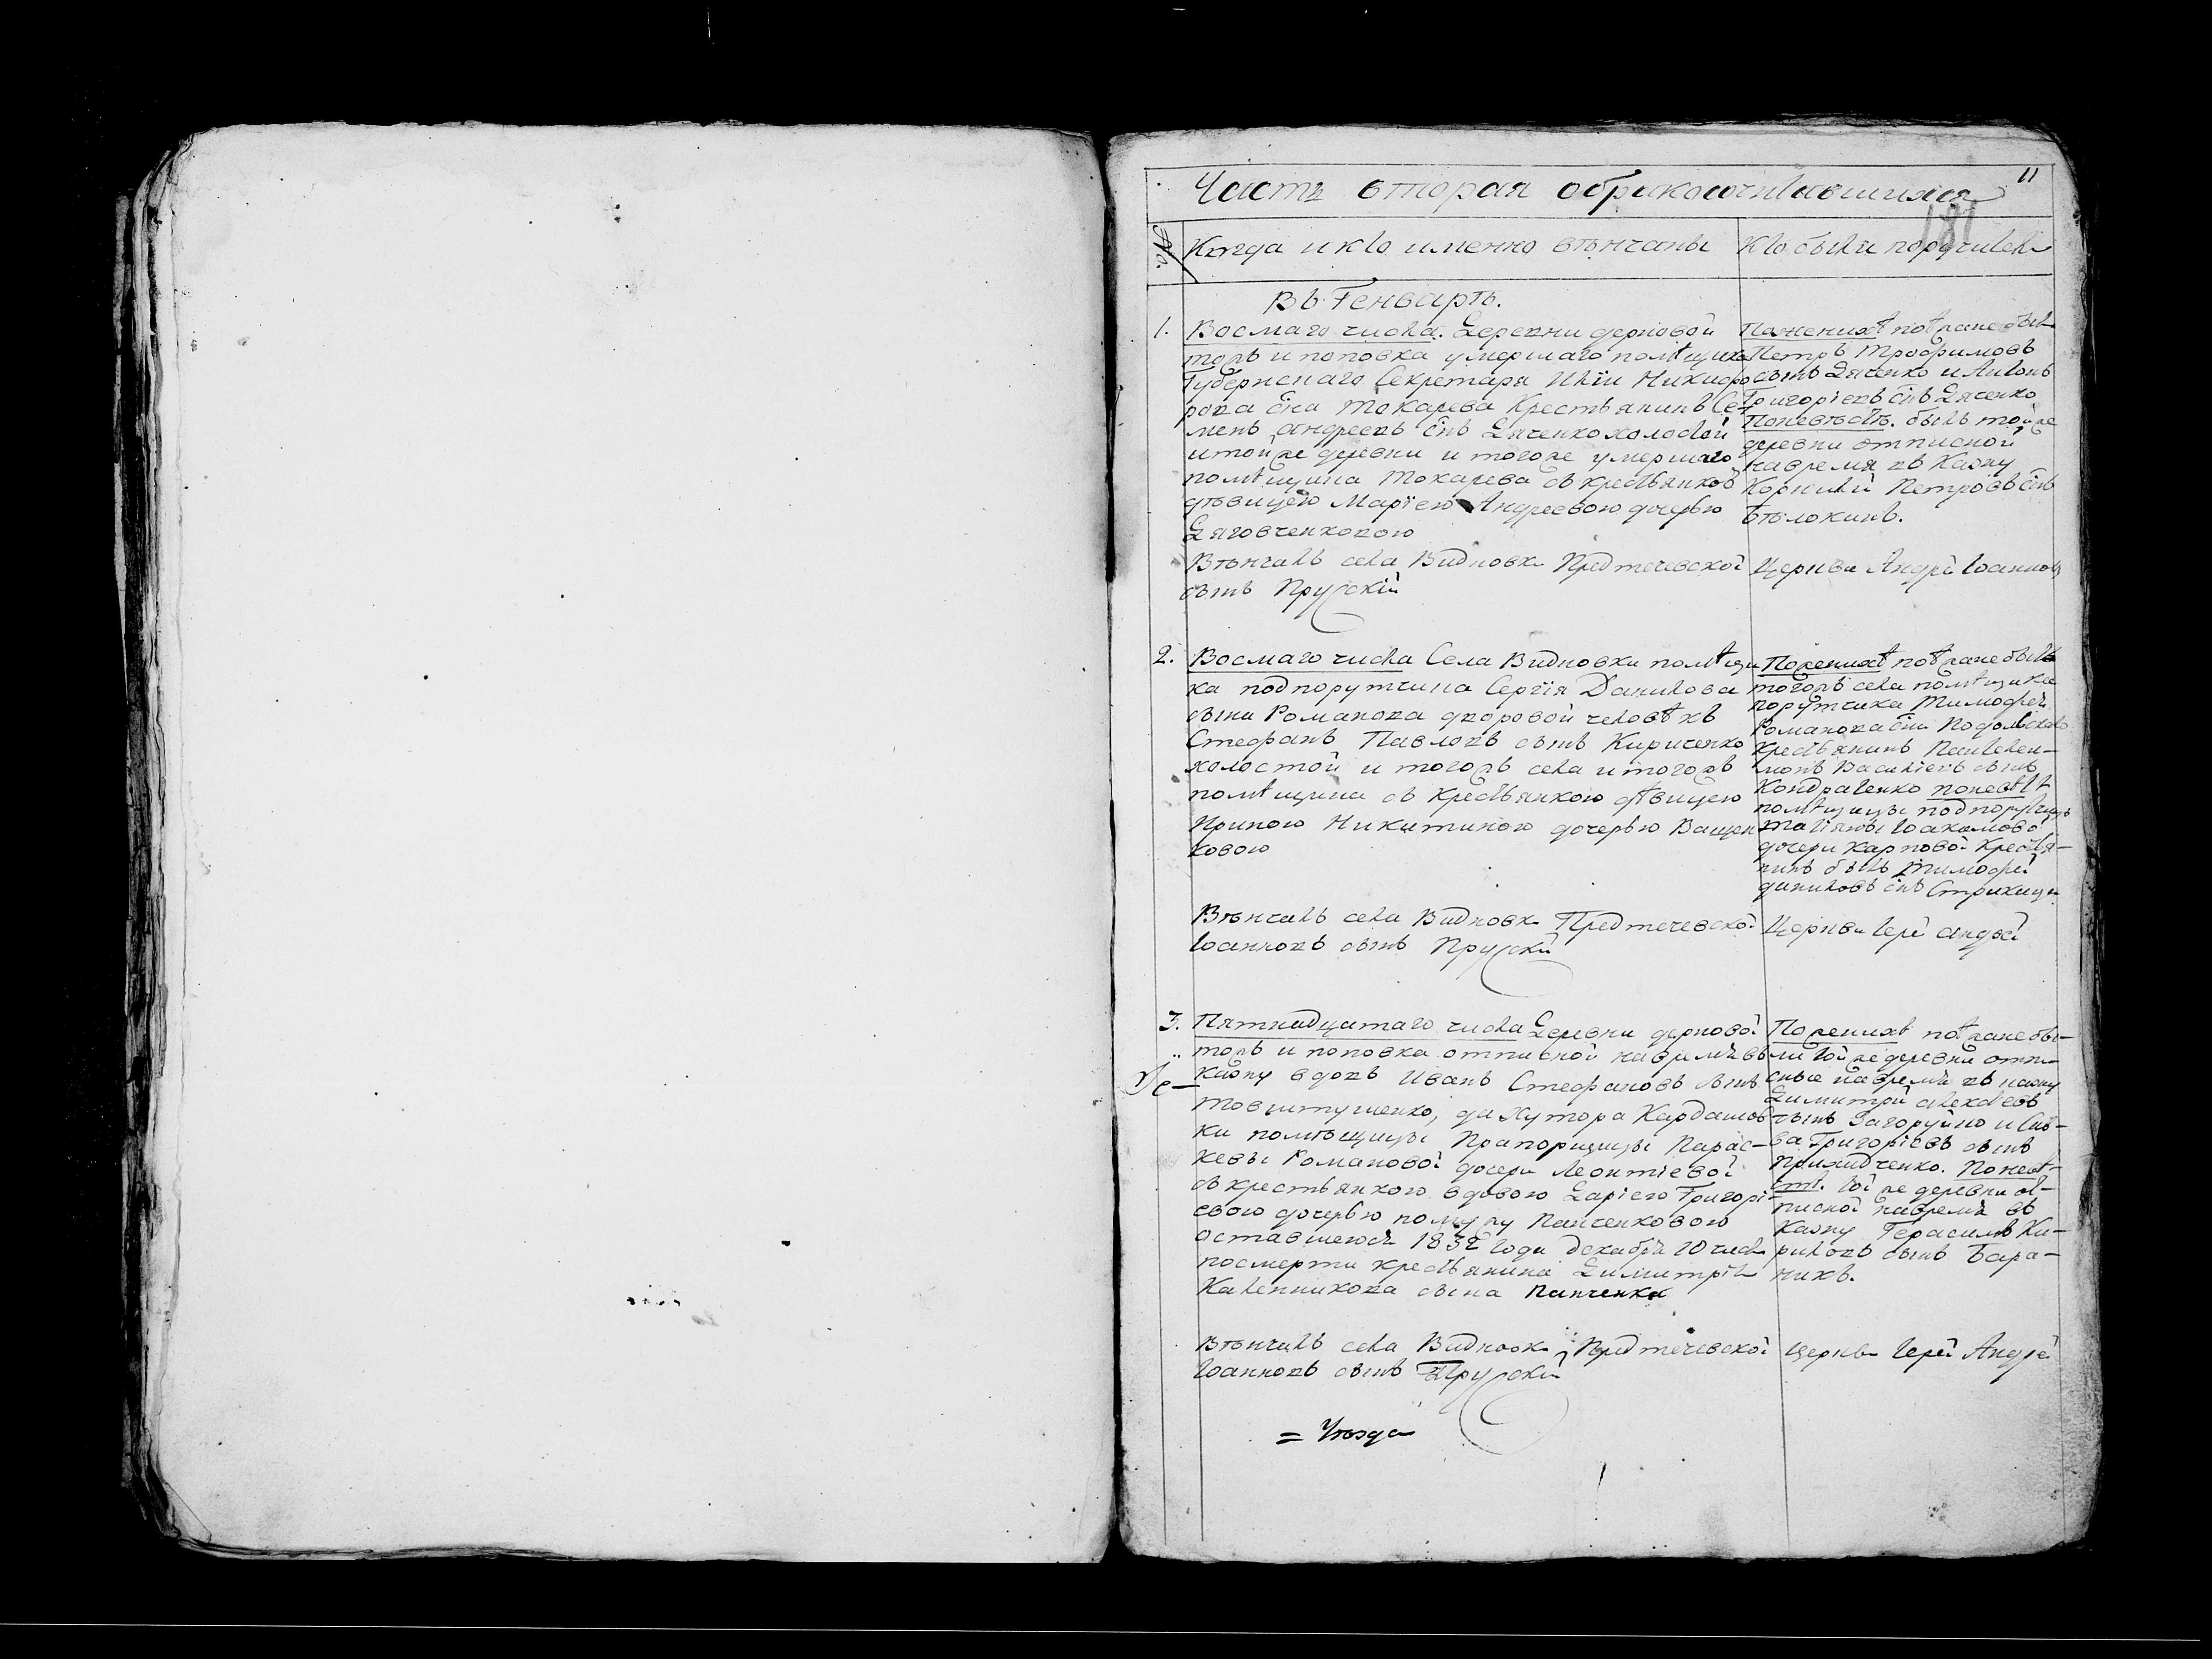 11
Часть вторая обракосочетавшихся
181
№. Когда и кто именно вѣнчаны
Кто были поручители
Въ Генварѣ.
1. Восмаго числа. Деревни дерновой
торъ и поповка умершаго помѣщика
Губернскаго Секретаря Иліи Никифо
рова сна Токарева Крестьянинъ Се-
менъ Андреевъ снъ Дяченко холостой
итойже деревни и тогоже умершаго
помѣщика Токарева съ крестьянкою
дѣвицею Маріею Андреевою дочерью
Дяговченковою
Поженихѣ потжане были
Петръ Трофимовъ
сынъ Дяченко и Антонъ
Григоріевъ снъ Дяченко
Поневѣстѣ. былъ тойже
деревни отписной
навремя въ Казну
Корнилій Петровъ снъ
Бѣлокинъ.
Вѣнчалъ села Видновки Предтечевской Церкви Андрей Іоанновъ
сынъ Прускій
2. Восмаго числа Села Видновки помѣщи
ка подпорутчика Сергія Данилова
сына Романова дворовой человѣкъ
Стефанъ Павловъ сынъ Кириченко
холостой и тогожъ села и тогожъ
помѣщика съ крестьянкою дѣвицею
Ириною Никитиною дочерью Ващен
ковою
Поженихѣ потжане былъ
тогожъ села помѣщика
порутчика Тимофея
Романова сна Подольскаго
Крестьянинъ Пантелей-
монъ Василіевъ сынъ
Кондраченко поневѣстѣ
помѣщицы подпорутчицы
Татіяны Іоакимовой
дочери Карповой Крестья-
нинъ былъ Тимофей
даниловъ снъ
Вѣнчалъ села Видновки Предтечевской Церкви Іерей Андрей
Іоанновъ сынъ Прускій
3. Пятнадцатаго числа Деревни дерновой
торъ и поповка отписной навремя въ
казну вдовъ Иванъ Стефановъ сынъ
Товштушенко, да Хутора Кардашов
ки помѣщицы Прапорщицы Парас-
кевы Романовой дочери Леонтіевой
съ крестьянкою вдовою Даріею Григорі-
евою дочерью помужу Панченковою
оставшеюся 1832 года декабря 20 числа
посмерти крестьянина Димитрія
Каленникова сына Панченка
Поженихѣ потжане бы-
ли тойже деревни отпи-
сные навремя въ казну
Димитрій Алексѣевъ
сынъ Загоруйко и Сав-
ва Григоріевъ сынъ
Приходченко. Поневѣ-
стѣ. тойже деревни от-
писной навремя въ
Казну Герасимъ Ки-
риловъ сынъ Бара-
никъ.
Вѣнчалъ села Видновки Предтечевской Церкви Іерей Андрей
Іоанновъ сынъ Прускій
= Уѣзда